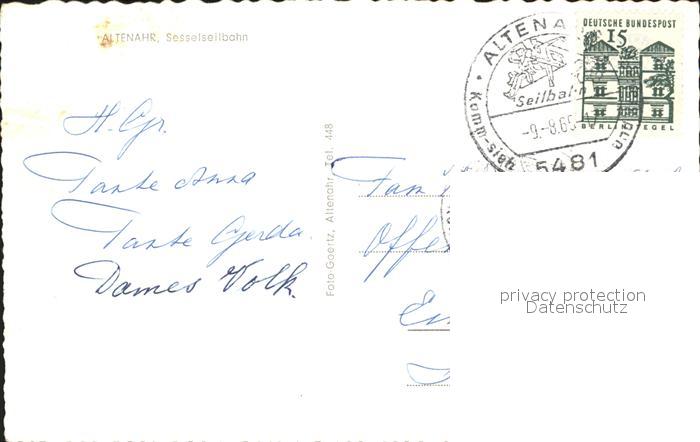 ALTENAHR, Sesselseilbahn
H. Gr.
Tante Anna
Tante Gerda.
Dames Volk.
Foto-Goertz, Altenahr, Tel. 448
ALTENA
Seilbahn
-9.-8.65
Komm-sieh
5481
DEUTSCHE BUNDESPOST
15
BERLIN TEGEL
Fam
Offe
privacy protection
Datenschutz